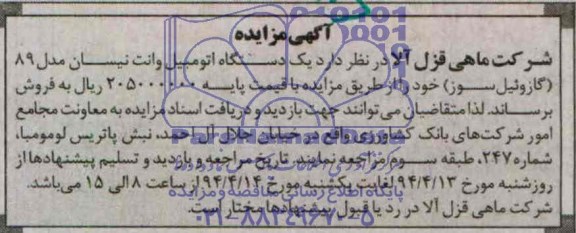 آگهی مزایده
شرکت ماهی قزل آلا در نظر دارد یک دستگاه اتومبیل وانت نیسان مدل ۸۹
(گازوئیل سوز) خود را از طریق مزایده با قیمت پایه ۲۰۵۰۰۰۰۰۰ ریال به فروش
برساند. لذا متقاضیان می توانند جهت بازدید و دریافت اسناد مزایده به معاونت مجامع
امور شرکت‌های بانک کشاورزی واقع در خیابان جلال آل احمد، نبش پاتریس لومومبا،
شماره ۲۴۷، طبقه سوم مراجعه نمایند. تاریخ مراجعه و بازدید و تسلیم پیشنهادها از
روز شنبه مورخ ۹۴/۴/۱۳ لغایت یکشنبه مورخ ۹۴/۴/۱۴ از ساعت ۸ الی ۱۵ می‌باشد.
شرکت ماهی قزل آلا در رد یا قبول پیشنهادها مختار است.
پایگاه اطلاع رسانی مناقصه و مزایده
۰۲۱-۸۸۳۴۹۶۷۰-۵